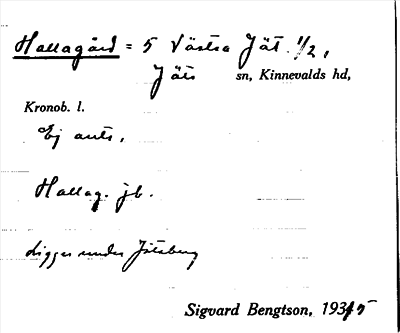 Hallagård = 5 Västra Jät 1/2,
Jäts sn, Kinnevalds hd,
Kronob. l.
Ej ant.,
Hallag. jb.
Ligger under Jätsberg
Sigvard Bengtson, 1935